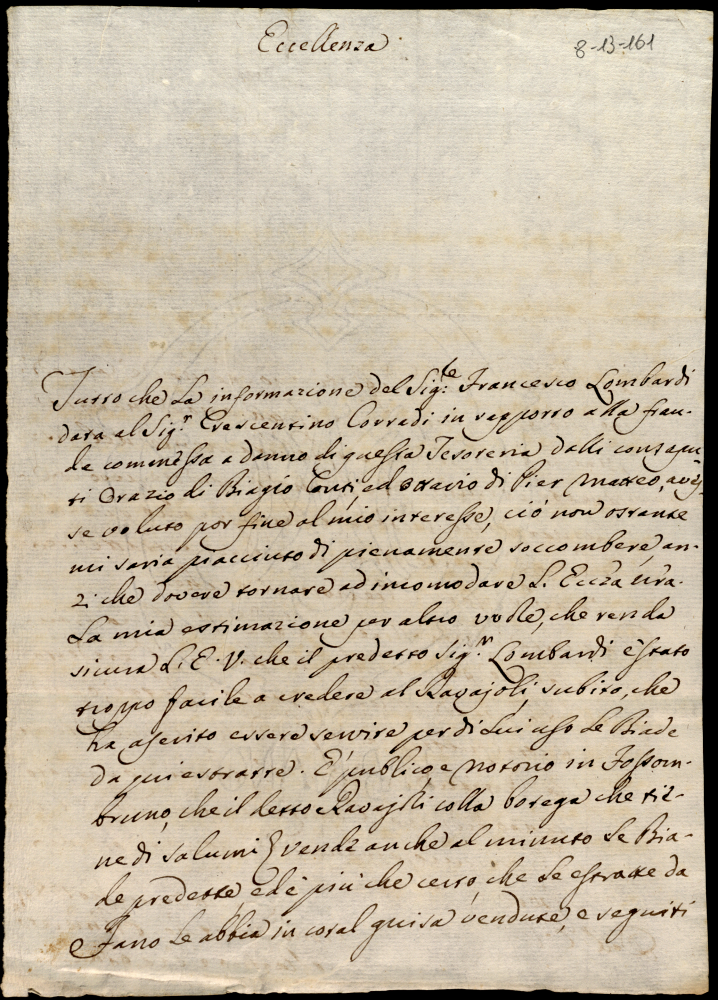 Eccellenza
8-13-161
Tutto che la informazione del Sig:te Francesco Lombardi
data al Sigr Crescentino Corradi in rapporto alla frau-
de commessa a danno di questa Tesoreria dalli consapu-
ti Orazio di Biagio Conti, ed Ottavio di Pier Matteo, aves-
se voluto por fine al mio interesse, ciò non ostante
mi saria piacciuto di pienamente soccombere, an-
zi che dovere tornare ad incomodare L. Eccza Vra.
La mia estimazione per altro vuole, che renda
sicura L. E. V. che il predetto Sigr. Lombardi è stato
troppo facile a credere al Ravajoli, subito, che
ha aserito essere servire per di lui uso le Biade
da qui estratte. È publico, e notorio in Fossom-
bruno, che il detto Ravajoli colla botega che tie-
ne di salumi vende anche al minuto le Bia-
de predette, ed è più che certo, che le estratte da
Fano le abbia in cotal guisa vendute, e seguiti